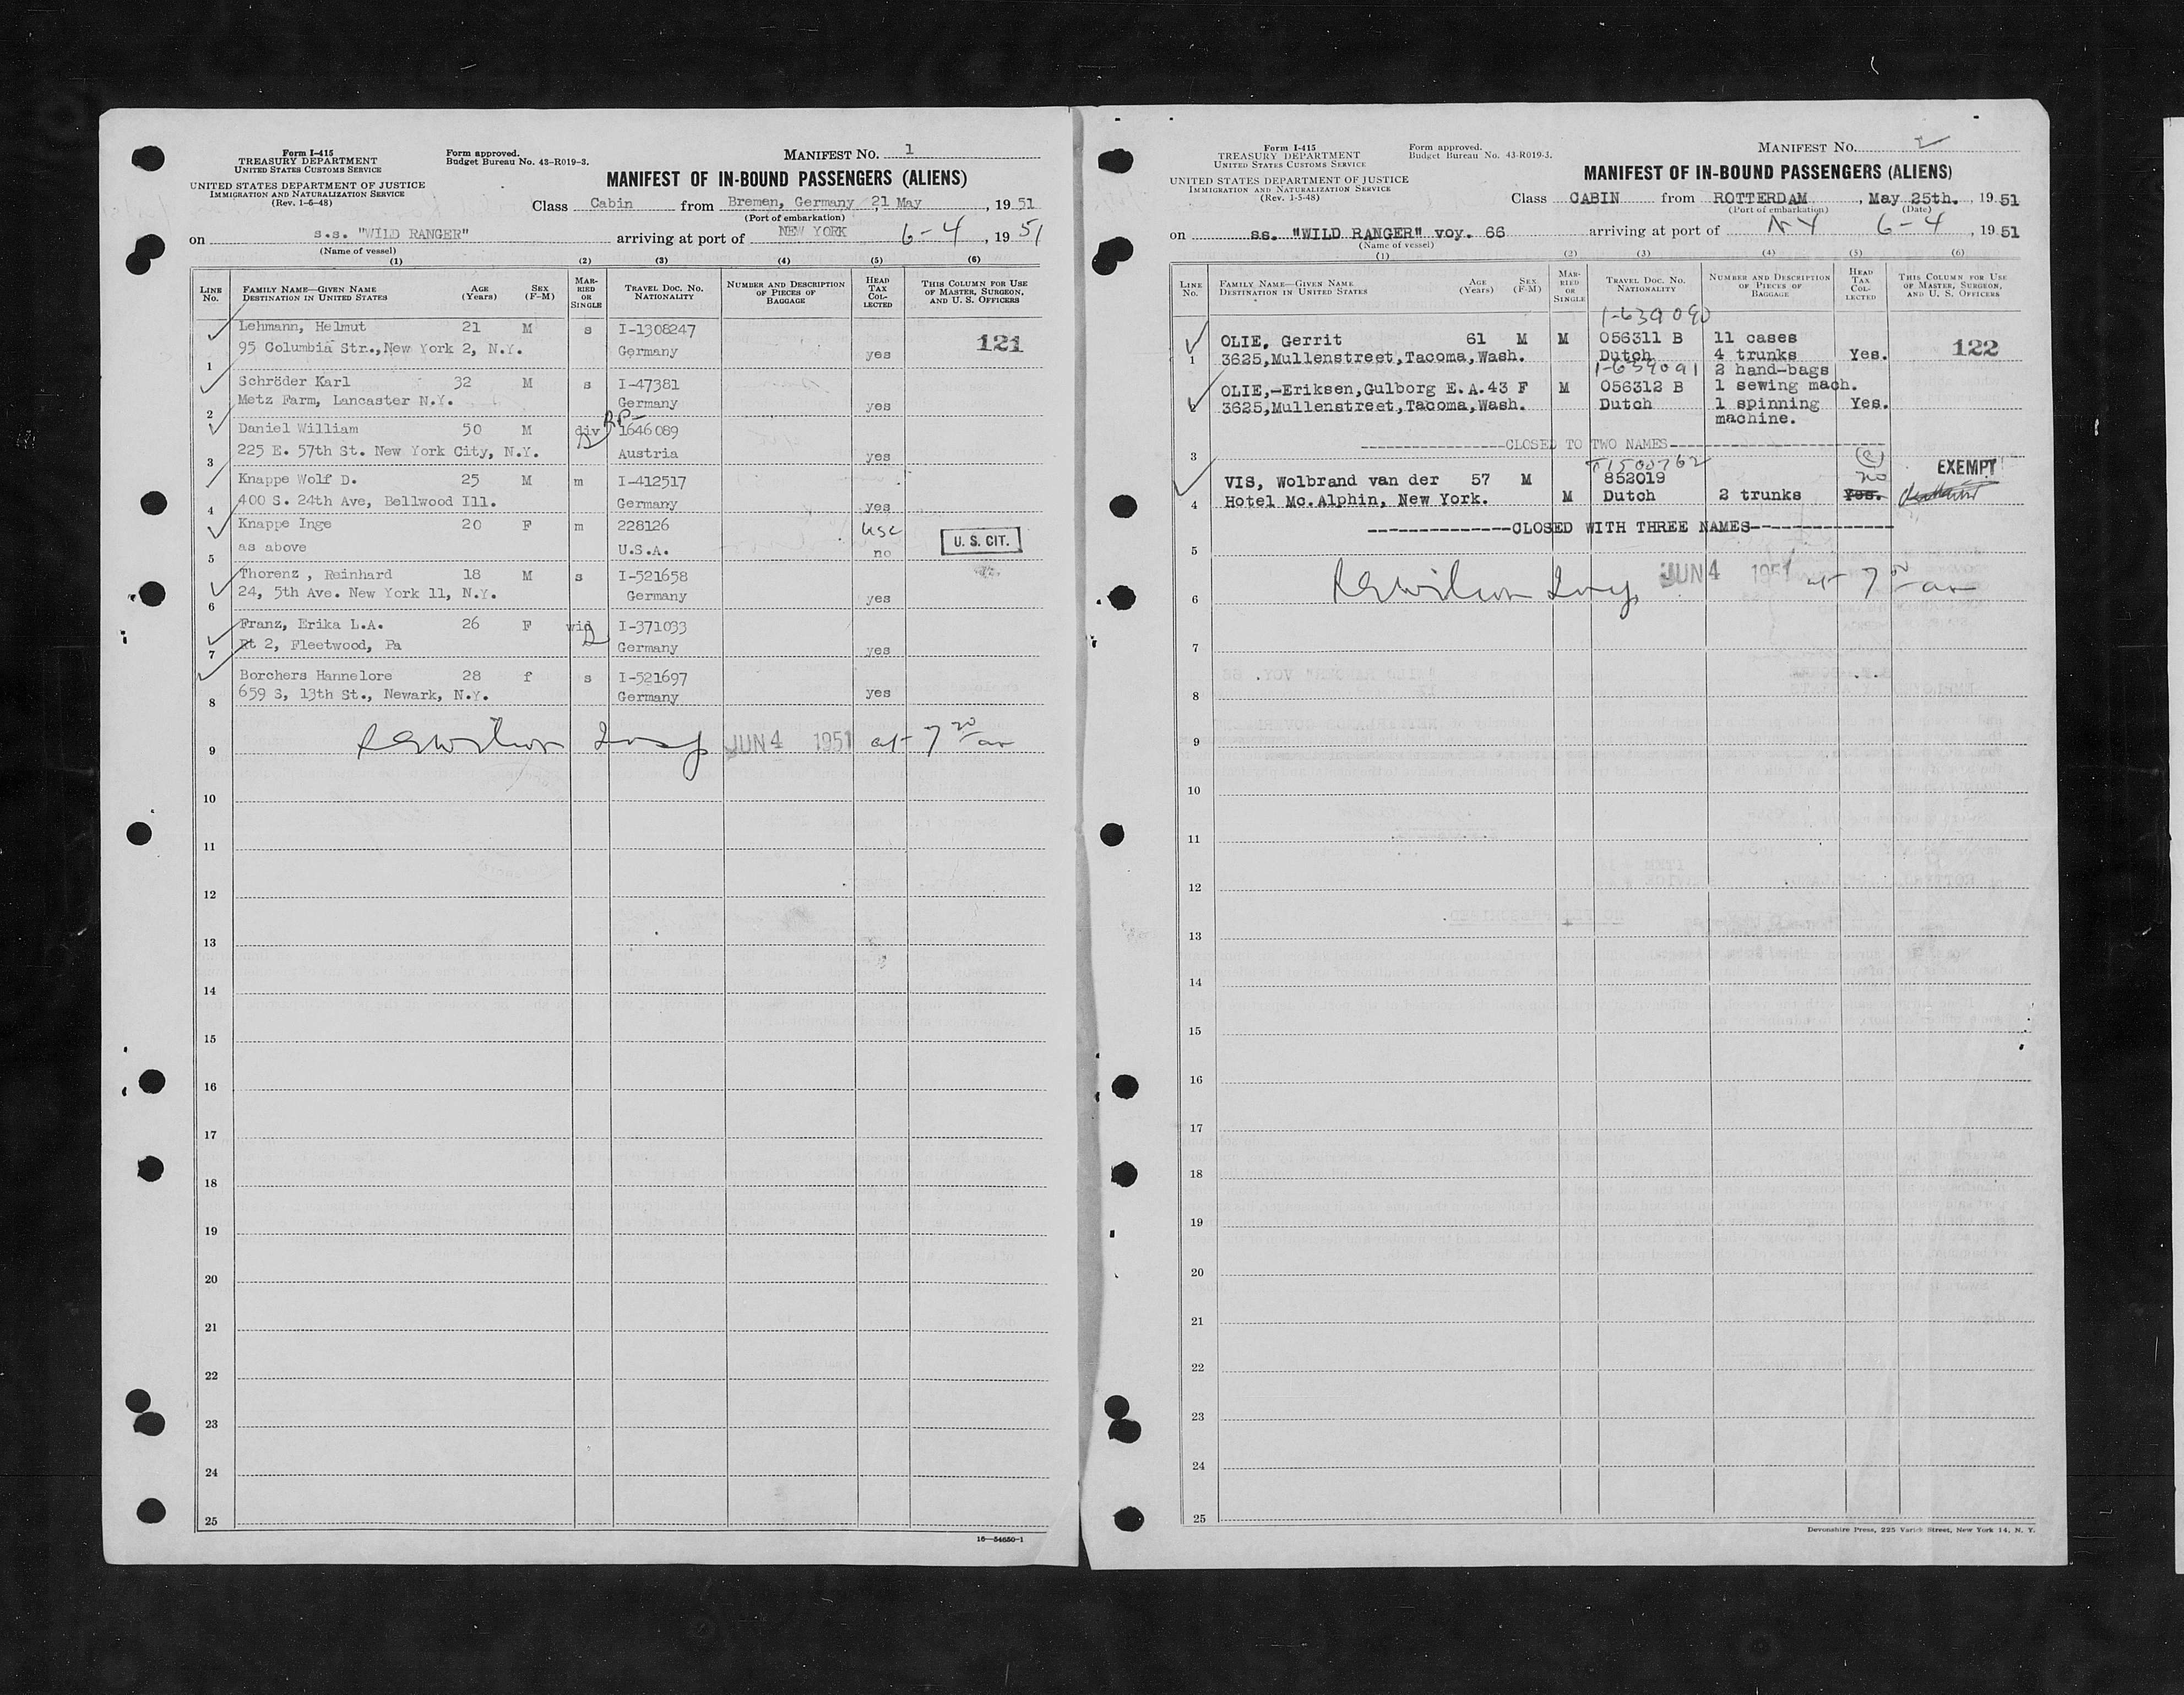 Form I-415
TREASURY DEPARTMENT
UNITED STATES CUSTOMS SERVICE
UNITED STATES DEPARTMENT OF JUSTICE
IMMIGRATION AND NATURALIZATION SERVICE
(Rev. 1-5-48)
Form approved.
Budget Bureau No. 43-R019-3.
MANIFEST No. 1
MANIFEST OF IN-BOUND PASSENGERS (ALIENS)
Class Cabin from Bremen, Germany, 21 May, 1951
(Port of embarkation)
on s.s. "WILD RANGER" arriving at port of NEW YORK 6-4, 1951
(Name of vessel)
(1) (2) (3) (4) (5) (6)
LINE No. FAMILY NAME—GIVEN NAME DESTINATION IN UNITED STATES AGE (Years) SEX (F-M) MARRIED OR SINGLE TRAVEL DOC. NO. NATIONALITY NUMBER AND DESCRIPTION OF PIECES OF BAGGAGE HEAD TAX COLLECTED THIS COLUMN FOR USE OF MASTER, SURGEON, AND U. S. OFFICERS
Lehmann, Helmut 21 M s I-1308247 121
1 95 Columbia Str.,New York 2, N.Y. Germany yes
Schröder Karl 32 M s I-47381
2 Metz Farm, Lancaster N.Y. Germany yes
RP-
Daniel William 50 M div 1646089
3 225 E. 57th St. New York City, N.Y. Austria yes
Knappe Wolf D. 25 M m I-412517
4 400 S. 24th Ave, Bellwood Ill. Germany yes
Knappe Inge 20 F m 228126 USC U. S. CIT.
5 as above U.S.A. no
Thorenz , Reinhard 18 M s I-521658
6 24, 5th Ave. New York 11, N.Y. Germany yes
Franz, Erika L.A. 26 F wid I-371033
7 Rt 2, Fleetwood, Pa Germany yes
Borchers Hannelore 28 f s I-521697
8 659 S, 13th St., Newark, N.Y. Germany yes
9 JUN 4 1951 at 7 am
10
11
12
13
14
15
16
17
18
19
20
21
22
23
24
25
16—54650-1
Form I-415
TREASURY DEPARTMENT
UNITED STATES CUSTOMS SERVICE
UNITED STATES DEPARTMENT OF JUSTICE
IMMIGRATION AND NATURALIZATION SERVICE
(Rev. 1-5-48)
Form approved.
Budget Bureau No. 43-R019-3.
MANIFEST No. 2
MANIFEST OF IN-BOUND PASSENGERS (ALIENS)
Class CABIN from ROTTERDAM, May 25th., 1951
(Port of embarkation) (Date)
on ss. "WILD RANGER" voy. 66 arriving at port of NY 6-4, 1951
(Name of vessel)
(1) (2) (3) (4) (5) (6)
LINE No. FAMILY NAME—GIVEN NAME DESTINATION IN UNITED STATES AGE (Years) SEX (F-M) MARRIED OR SINGLE TRAVEL DOC. NO. NATIONALITY NUMBER AND DESCRIPTION OF PIECES OF BAGGAGE HEAD TAX COLLECTED THIS COLUMN FOR USE OF MASTER, SURGEON, AND U. S. OFFICERS
I-639090
OLIE, Gerrit 61 M M 056311 B 11 cases 122
1 3625,Mullenstreet,Tacoma,Wash. Dutch 4 trunks Yes.
I-639091 2 hand-bags
OLIE,-Eriksen,Gulborg E.A. 43 F M 056312 B 1 sewing mach.
2 3625,Mullenstreet,Tacoma,Wash. Dutch 1 spinning Yes.
machine.
-----------------CLOSED TO TWO NAMES-------------------------
3 T1500762 EXEMPT
VIS, Wolbrand van der 57 M 852019 no
4 Hotel Mc.Alphin, New York. M Dutch 2 trunks Yes.
---------------CLOSED WITH THREE NAMES---------------
5
6 JUN 4 1951 at 7 am
7
8
9
10
11
12
13
14
15
16
17
18
19
20
21
22
23
24
25
Devonshire Press, 225 Varick Street, New York 14, N. Y.